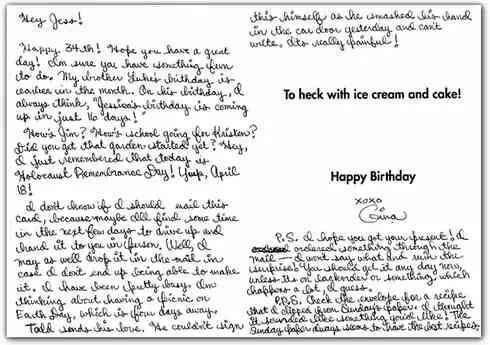 Hey Jess!
Happy 34th! Hope you have a great
day! I'm sure ya have something fun
to do. My brother Luke's birthday is
earlier in the month. On his birthday, I
always think, "Jessica's birthday is coming
up in just 16 days!"
How's Jim? How's school going for Kristen?
Did you get that garden started yet? Hey,
I just remembered that today is
Holocaust Remembrance Day! Yup, April
18!
I don't know if I should mail this
card, because maybe I'll find some time
in the next few days to drive up and
hand it to you in person. Well, I
may as well drop it in the mail in
case I don't end up being able to make
it. I have been pretty busy. I'm
thinking about having a picnic on
Earth Day, which is four days away.
Todd sends his love. He couldn't sign
this himself as he smashed his hand
in the car door yesterday and can't
write. It's really painful!
To heck with ice cream and cake!
Happy Birthday
xoxo
Gina
P.S. I hope you got your present! I
ordered something through the
mail – I won't say what and ruin the
surprise! You should get it any day now,
unless it's on backorder or something, which
happens a lot, I guess.
P.P.S. Check the envelope for a recipe
that I clipped from Sunday's paper. I thought
it sounded like something you'd like! The
Sunday paper always seems to have the best recipes.